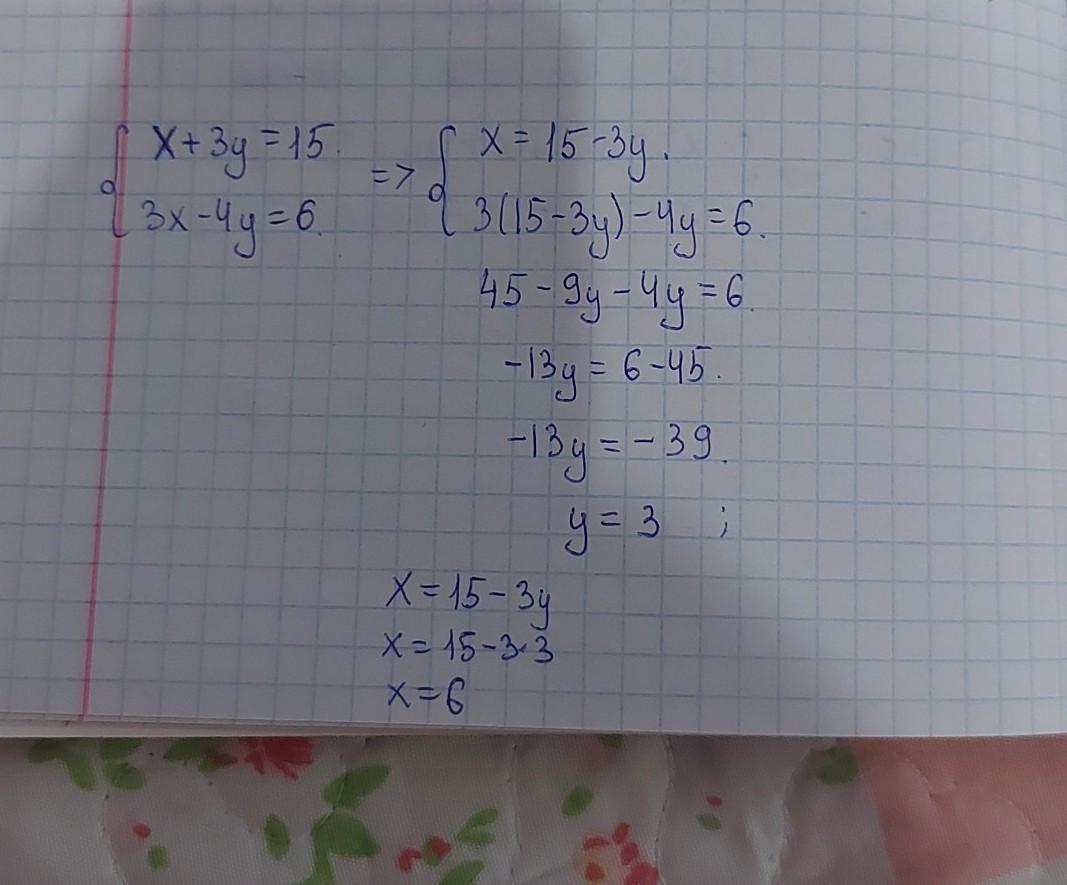 x+3y=15. => x=15-3y.
3x-4y=6. 3(15-3y)-4y=6.
45-9y-4y=6.
-13y=6-45.
-13y=-39.
y=3 ;
x=15-3y
x=15-3·3
x=6